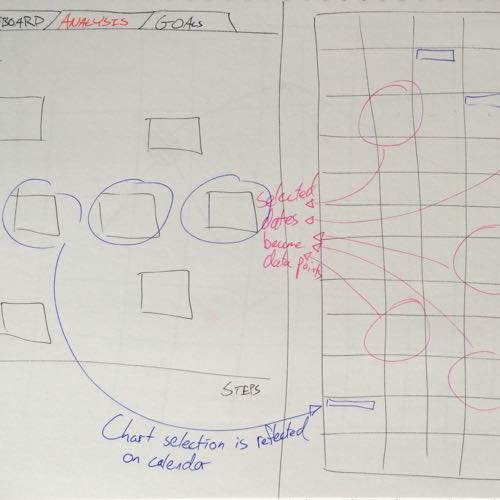 BOARD / ANALYSIS / GOALS
selected
dates
become
data points
STEPS
Chart selection is reflected
on calendar